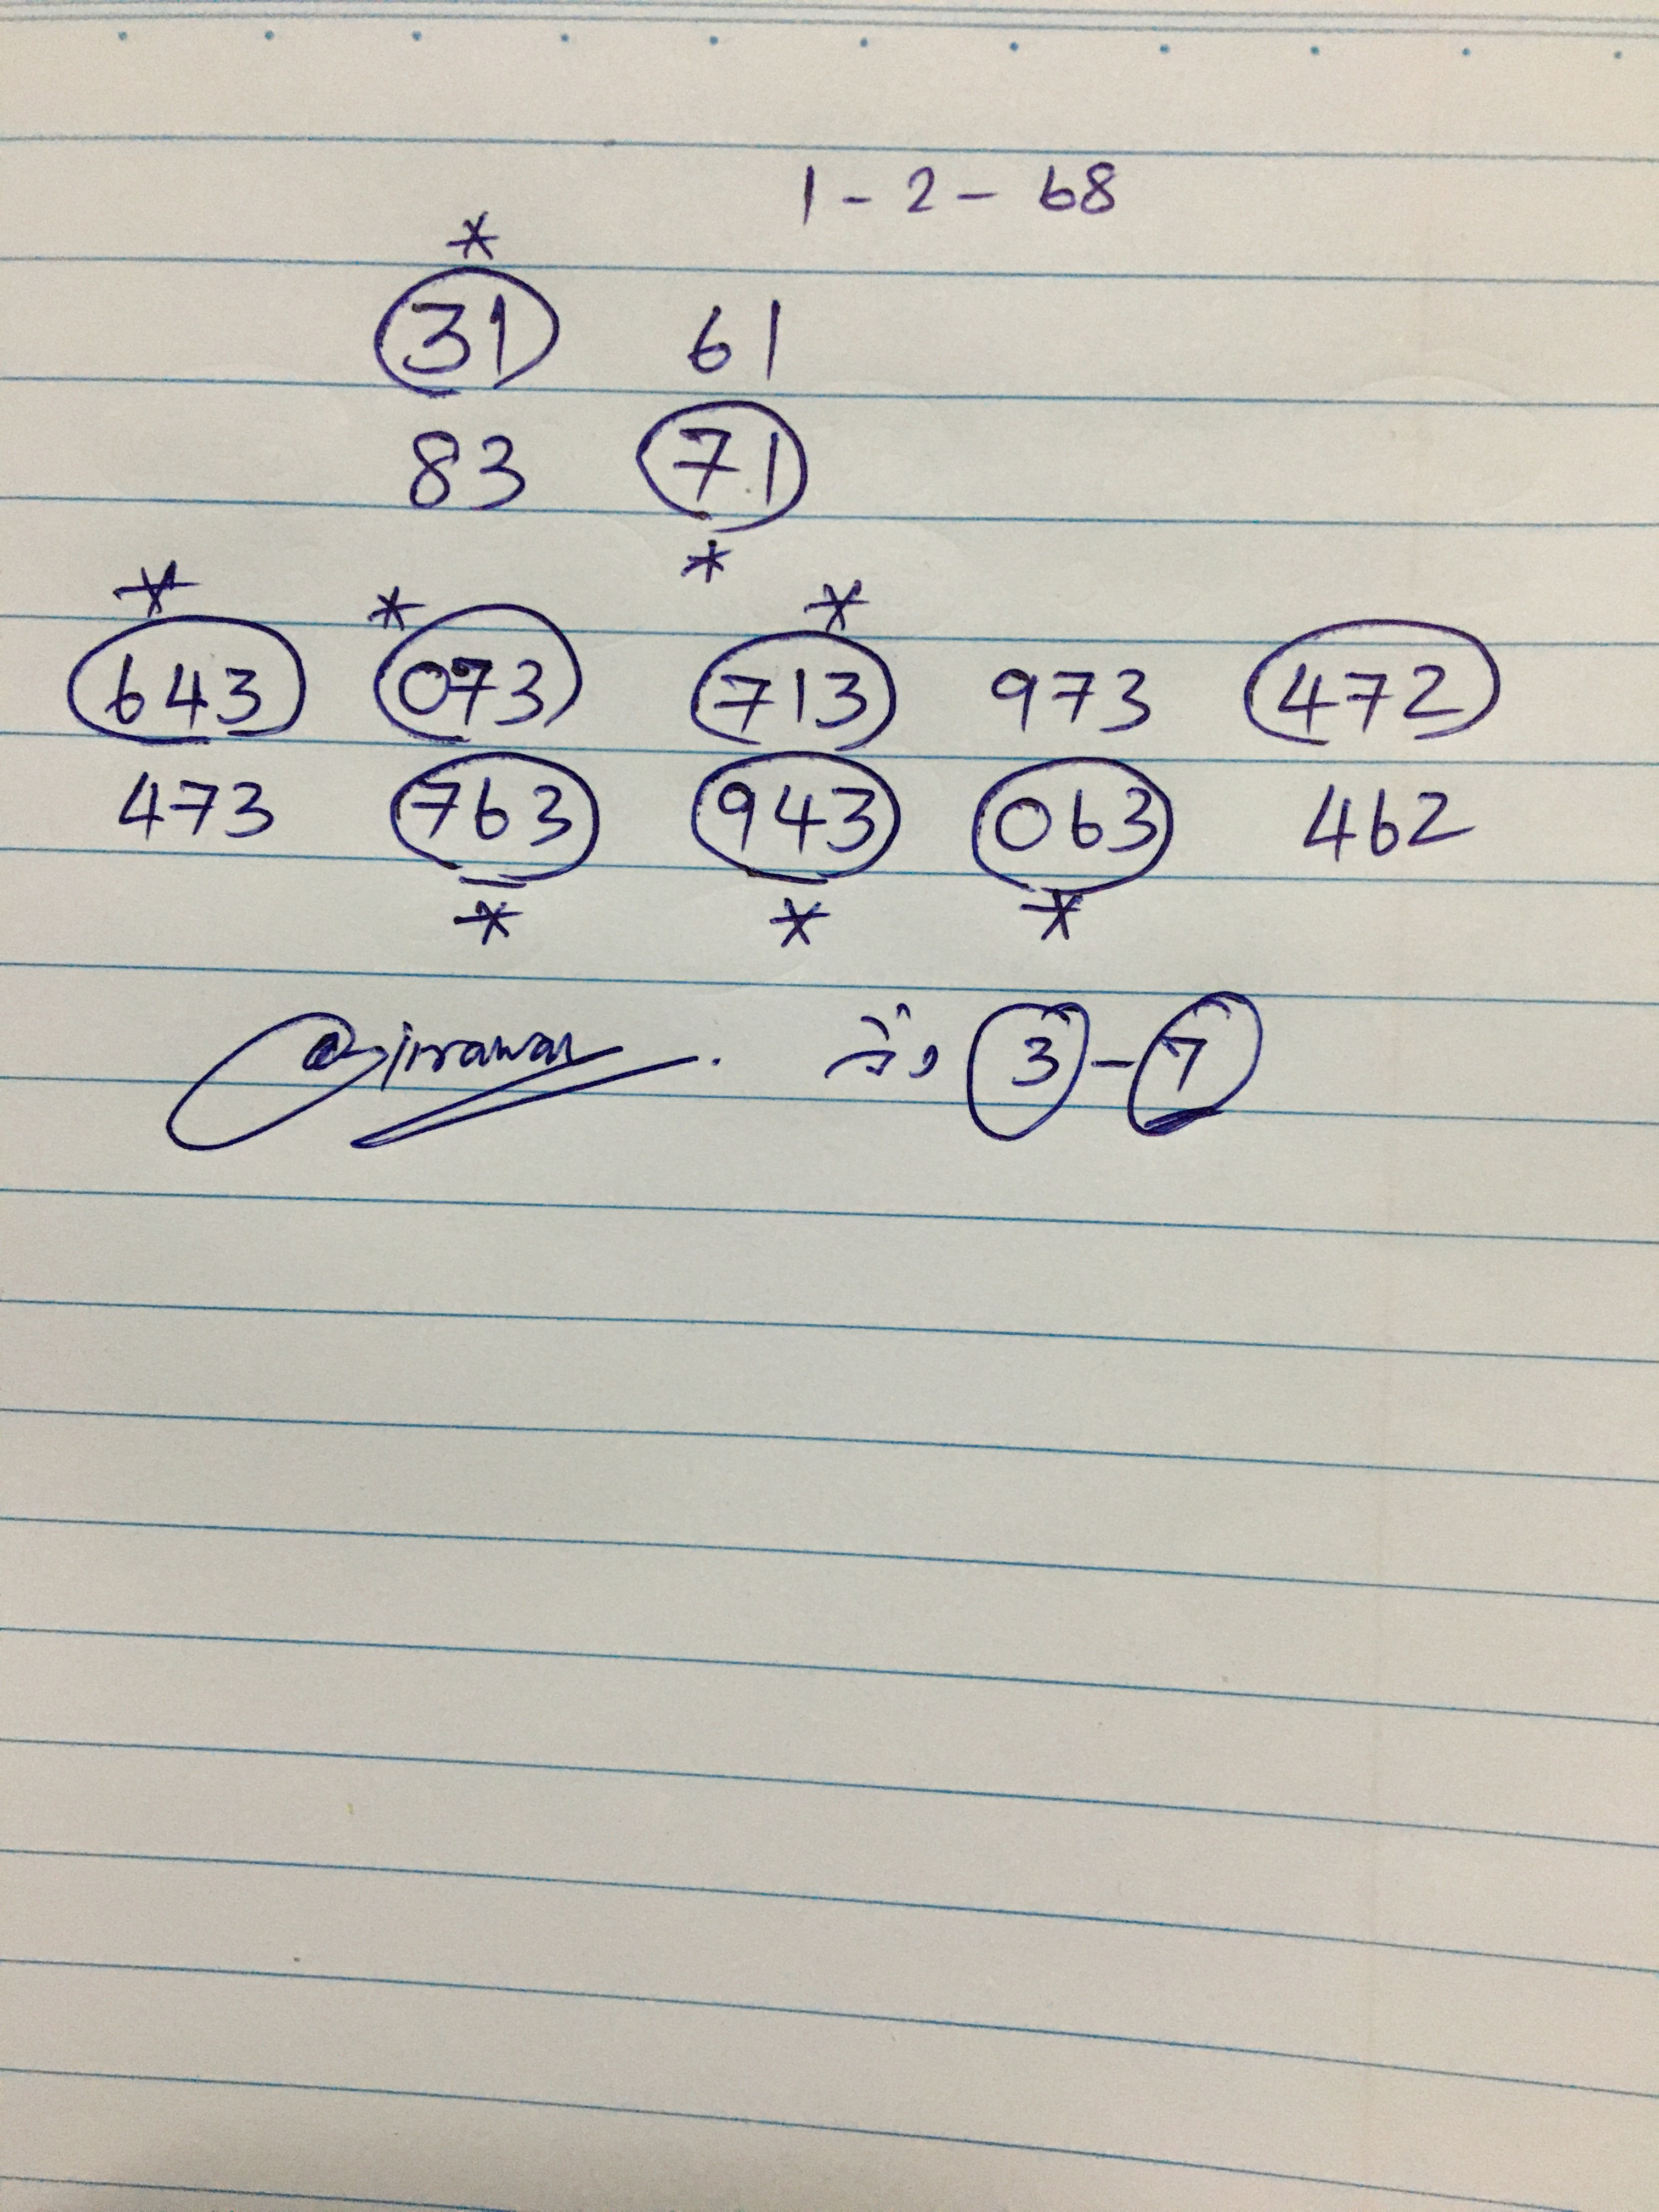 1 - 2 - 68
*
31 61
83 71
*
* * *
643 073 713 973 472
473 763 943 063 462
* * *
วิ่ง 3 - 7